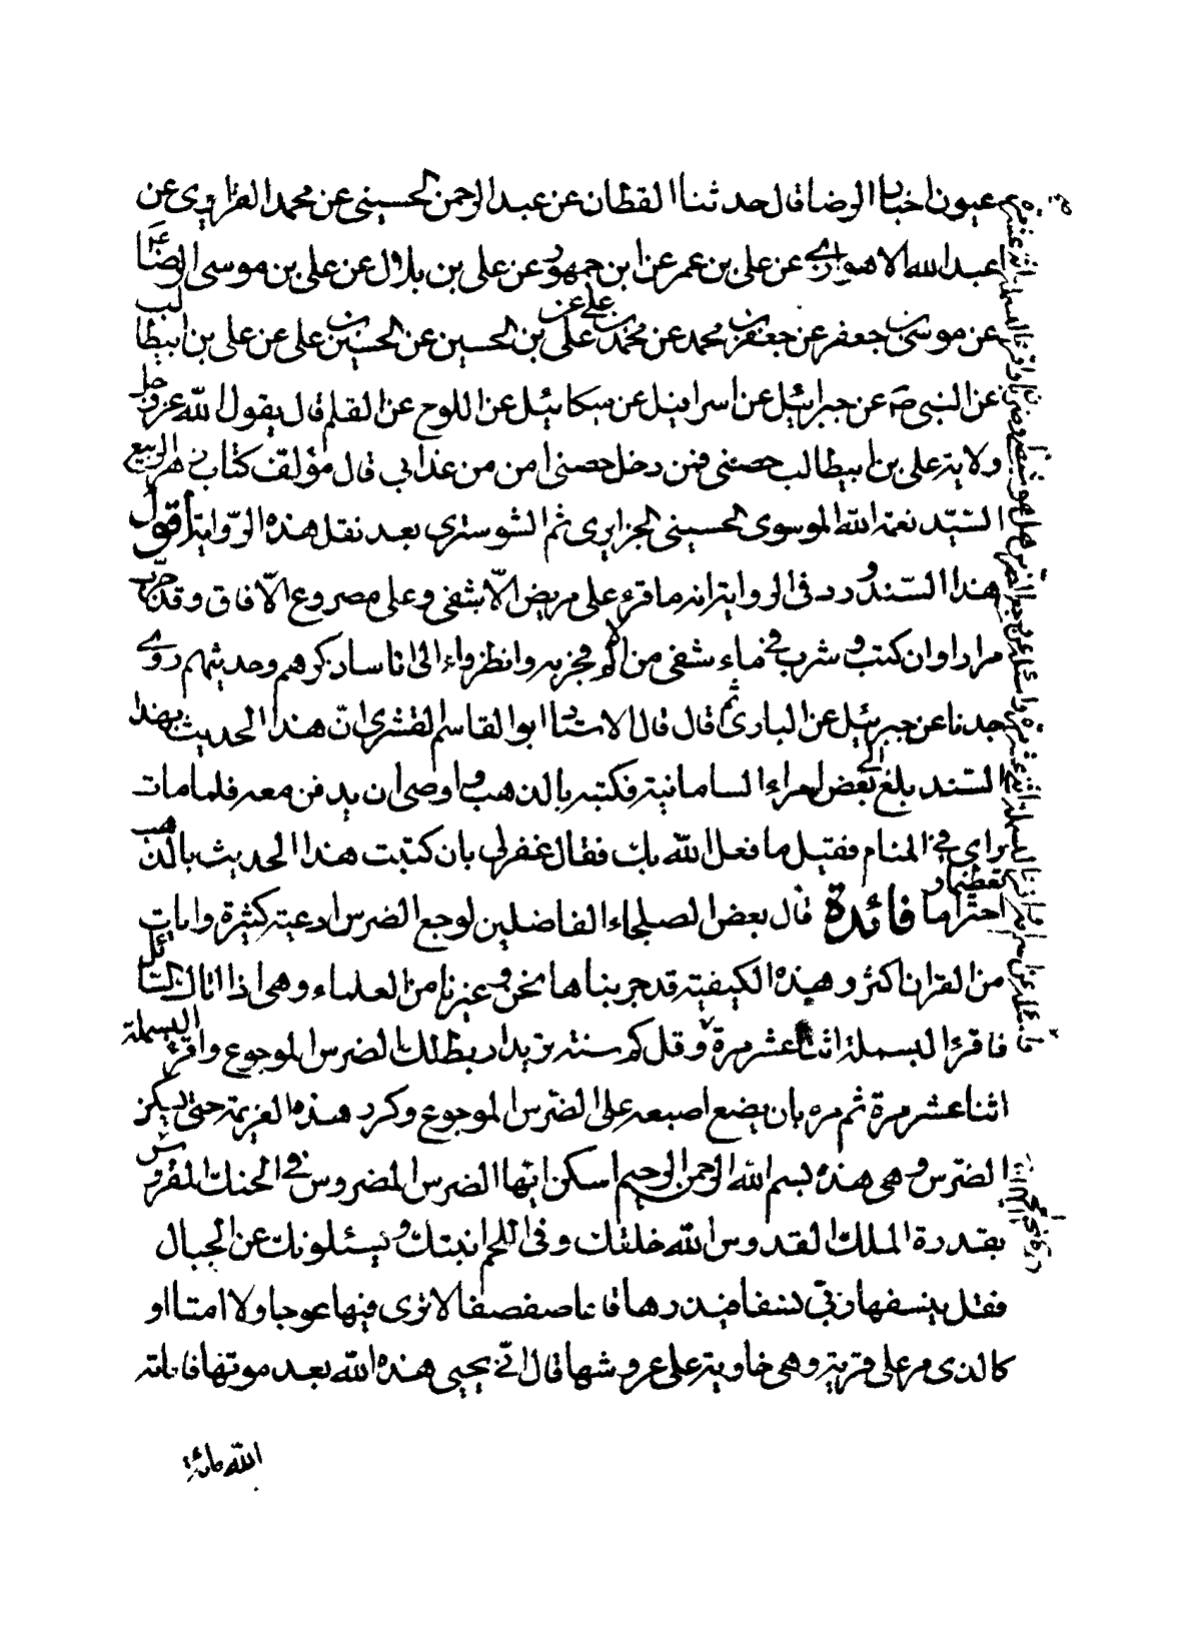 عيون اخبار الرضا قال حدثنا القطان عن عبد الرحمن الحسيني عن محمد الفزاري عن
عبد الله الاهوازي عن علي بن عمر عن ابن جمهور عن علي بن بلال عن علي بن موسى الرضا ع
عن موسى بن جعفر عن جعفر بن محمد عن محمد بن علي عن علي بن الحسين عن الحسين بن علي عن علي بن ابيطالب
عن النبي ص عن جبرائيل عن اسرافيل عن ميكائيل عن اللوح عن القلم قال يقول الله عز وجل
ولاية علي بن ابيطالب حصني فمن دخل حصني امن من عذابي قال مؤلف كتاب زهر الربيع
السّيّد نعمة الله الموسوي الحسيني الجزايري ثم الشوستري بعد نقل هذه الرّواية أقول
هذا السّند ورد في الرواية انه ما قرء على مريض الّا شفي وعلى مصروع الّا فاق وقد جرّب
مرارا وان كتب وشرب في ماء شفي من الم فجربه وانظر واء الى اناسا ذكرهم وحديثهم روى
جدنا عن جبرئيل عن البارئ ثم قال قال الاستاد ابو القاسم القشري انّ هذا الحديث بهذا
السّند بلغ الى بعض امراء السامانية فكتبه بالذهب واوصى ان يدفن معه فلما مات
براي في المنام فقيل ما فعل الله بك فقال غفر لي بان كتبت هذا الحديث بالذهب
تعظيما و احتراما فائدة قال بعض الصلحاء الفاضلين لوجع الضرس ادعية كثيرة وايات
من القران اكثر وهذه الكيفية قد جربناها نحن وغيرنا من العلماء وهي اذا اتاك السّائل
فاقرء البسملة اثنا عشر مرة وقل كم سنة تريد اربط لك الضرس الموجوع واقرء البسملة
اثنا عشر مرة ثم مره بان يضع اصبعه على الضرس الموجوع وكرر هذه العزيمة حتى يسكن
الضرس وهي هذه بسم الله الرحمن الرحيم اسكن ايّها الضرس المضروس في الحنك المفروش
بقدرة الملك القدوس الله خلقك وفي اللحم انبتك ويسئلونك عن الجبال
فقل ينسفها ربّي نسفا فيذرها قاعا صفصفا لا ترى فيها عوجا ولا امتا او
كالذي مر على قرية وهي خاوية على عروشها قال انّى يحيى هذه الله بعد موتها فاماته
الله مائة